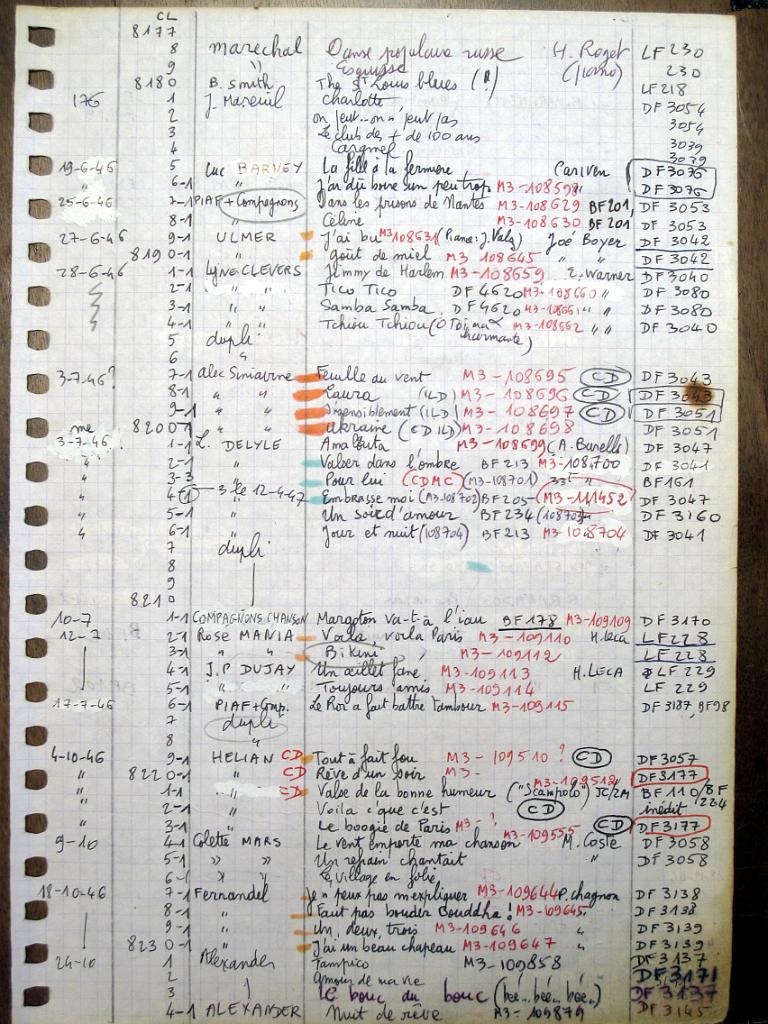 CL
8177
8 marechal Danse populaire russe H. Roget LF 230
9 " Esquisse (piano) 230
8180 B. Smith The St Louis blues (R) LF 218
176 1 J. Mareuil Charlotte DF 3054
2 on peut..on n'peut pas 3054
3 Le club des + de 100 ans 3039
4 3039
19-6-46 5 Luc BARNEY La fille à la fermière, Cariven DF 3076
" 6-1 " J'ai dû boire un peu trop M3-108598 " DF 3076
25-6-46 7-1 PIAF + Compagnons Dans les prisons de Nantes M3-108629 BF 201, DF 3053
8-1 " Céline M3-108630 BF 201 DF 3053
27-6-46 9-1 ULMER J'ai bu M3 108631 (Piano: J. Valz) Joé Boyer DF 3042
8190-1 " goût de miel M3 108645 " " DF 3042
28-6-46 1-1 Lyne CLEVERS Jimmy de Harlem M3-108659, E. Warner DF 3040
2-1 " " Tico Tico DF 4620 M3-108660 " DF 3080
3-1 " " Samba Samba. DF 4620 M3-108661 " " DF 3080
4-1 " " Tchiou Tchiou (O Toi, ma charmante) M3-108662 " " DF 3040
5 dupli
6 "
3-7-46? 7-1 Alec Siniavine Feuille au vent M3-108695 CD DF 3043
8-1 " " Laura (ILD) M3-108696 CD DF 3043
9-1 " " Insensiblement (ILD) M3-108697 CD DF 3051
me 8200-1 " " Ukraine (CD ILD) M3-108698 DF 3051
3-7-46. 1-1 L. DELYLE Amapouta M3-108699 (A. Barelli) DF 3047
" 2-1 " Valser dans l'ombre BF 213 M3-108.700 DF 3041
" 3-3 " Pour lui (CDMC) (M3-108701) 33t " BF 161
" 4-1 - 3 le 12-4-47 Embrasse moi (M3-108702) BF 205 - M3-111452 DF 3047
" 5-1 " Un soir d'amour BF 234 (108703) DF 3160
" 6-1 " Jour et nuit (108704) BF 213 M3-108704 DF 3041
7 dupli
8
9
8210
10-7 1-1 COMPAGNONS CHANSON Margoton va-t-à l'iau BF 178 M3-109109 DF 3170
12-7 2-1 Rose MANIA Voilà, voilà Paris M3-109110 H. Leca LF 228
3-1 " " Bikini, M3-109112 " LF 228
4-1 J.P DUJAY Un œillet fané M3-109113 H. LECA LF 229
5-1 " " Toujours amis M3-109114 LF 229
17-7-46 6-1 PIAF + Comp. Le Roi a fait battre tambour M3-109115 DF 3187, BF 98
7 dupli
8 "
4-10-46 9-1 HELIAN CD Tout à fait fou M3-109510? CD DF 3057
" 8220-1 " CD Rêve d'un soir M3- DF 3177
" 1-1 " CD Valse de la bonne humeur ("Scampolo") M3-109512 JC/2M BF 110/BF 234
" 2-1 " Voilà c'que c'est CD inédit
3-1 " Le boogie de Paris M3-? CD DF 3177
9-10 4-1 Colette MARS Le vent emporte ma chanson M3-109555 M. Coste DF 3058
5-1 " " Un refrain chantait " DF 3058
6-( " " Le Village en folie
18-10-46 7-1 Fernandel Je n'peux pas m'expliquer M3-109644 P. Chagnon DF 3138
8-1 " Faut pas bouder Bouddha! M3-109645 " DF 3138
9-1 " Un, deux, trois M3-109646 " DF 3139
8230-1 " J'ai un beau chapeau M3-109647 " DF 3139
24-10 1 Alexander Tampico M3-109858 DF 3137
2 Amour de ma vie DF 3171
3 Le bouc du bouc (bée..bée..bée..) DF 3137
4-1 ALEXANDER Nuit de rêve M3-109879 DF 3145